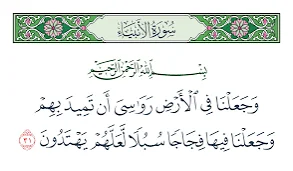 سُورَةُ الأَنْبِيَاءِ
بِسْمِ اللَّهِ الرَّحْمَٰنِ الرَّحِيمِ
وَجَعَلْنَا فِي ٱلْأَرْضِ رَوَٰسِيَ أَن تَمِيدَ بِهِمْ
وَجَعَلْنَا فِيهَا فِجَاجًا سُبُلًا لَّعَلَّهُمْ يَهْتَدُونَ ٣١